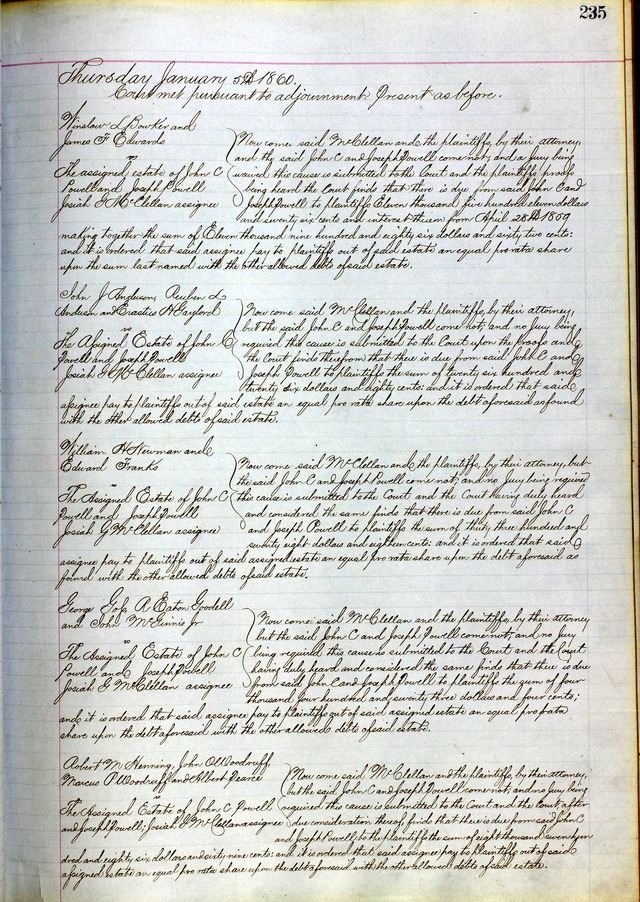 235
Thursday January 5th 1860.
Court met pursuant to adjournment. Present as before.
Winslow L Bowker and
James F Edwards
vs
The assigned estate of John C
Powell and Joseph Powell
Josiah G McClellan assignee
Now come said McClellan and the plaintiffs, by their attorney,
and the said John C and Joseph Powell come not, and a Jury being
waived this cause is submitted to the Court and the plaintiffs proofs
being heard the Court finds that there is due from said John C and
Joseph Powell to plaintiffs Eleven thousand five hundred eleven dollars
and seventy six cents and interest from April 28th 1859
making together the sum of Eleven thousand nine hundred and eighty six dollars and sixty two cents:
and it is ordered that said assignee pay to plaintiffs out of said estate an equal pro rata share
upon the sum last named with the other allowed debts of said estate.
John J Anderson, Reuben L
Anderson and Erastus H Gaylord
vs
The Assigned Estate of John C
Powell and Joseph Powell
Josiah G McClellan assignee
Now come said McClellan and the plaintiffs, by their attorney,
but the said John C and Joseph Powell come not; and no Jury being
required this cause is submitted to the Court upon the proofs and
the Court finds therefrom that there is due from said John C and
Joseph Powell to plaintiffs the sum of twenty six hundred and
twenty six dollars and eighty cents: and it is ordered that said
assignee pay to plaintiffs out of said estate an equal pro rata share upon the debt aforesaid as found
with the other allowed debts of said estate.
William H Newman and
Edward Franks
vs
The Assigned Estate of John C
Powell and Joseph Powell
Josiah G McClellan assignee
Now come said McClellan and the plaintiffs, by their attorney, but
the said John C and Joseph Powell come not; and no Jury being required
this cause is submitted to the Court and the Court having duly heard
and considered the same finds that there is due from said John C
and Joseph Powell to plaintiffs the sum of thirty three hundred and
seventy eight dollars and eighteen cents: and it is ordered that said
assignee pay to plaintiffs out of said assigned estate an equal pro rata share upon the debt aforesaid as
found with the other allowed debts of said estate.
George Goss A Eaton Goodell
and John McGinnis Jr
vs
The Assigned Estate of John C
Powell and Joseph Powell
Josiah G McClellan assignee
Now come said McClellan and the plaintiffs, by their attorney
but the said John C and Joseph Powell come not; and no Jury
being required this cause is submitted to the Court and the Court
having duly heard and considered the same finds that there is due
from said John C and Joseph Powell to plaintiffs the sum of four
thousand four hundred and seventy three dollars and four cents;
and it is ordered that said assignee pay to plaintiffs out of said assigned estate an equal pro rata
share upon the debt aforesaid with the other allowed debts of said estate.
Robert M Henning, John O Woodruff,
Marcus P Woodruff and Albert Pearce
vs
The Assigned Estate of John C Powell
and Joseph Powell; Josiah G McClellan assignee
Now come said McClellan and the plaintiffs, by their attorney,
but the said John C and Joseph Powell come not; and no Jury being
required this cause is submitted to the Court and the Court, after
due consideration thereof, finds that there is due from said John C
and Joseph Powell to the plaintiffs the sum of eight thousand seven hun
dred and eighty six dollars and sixty nine cents: and it is ordered that said assignee pay to plaintiffs out of said
assigned estate an equal pro rata share upon the debt aforesaid with the other allowed debts of said estate.